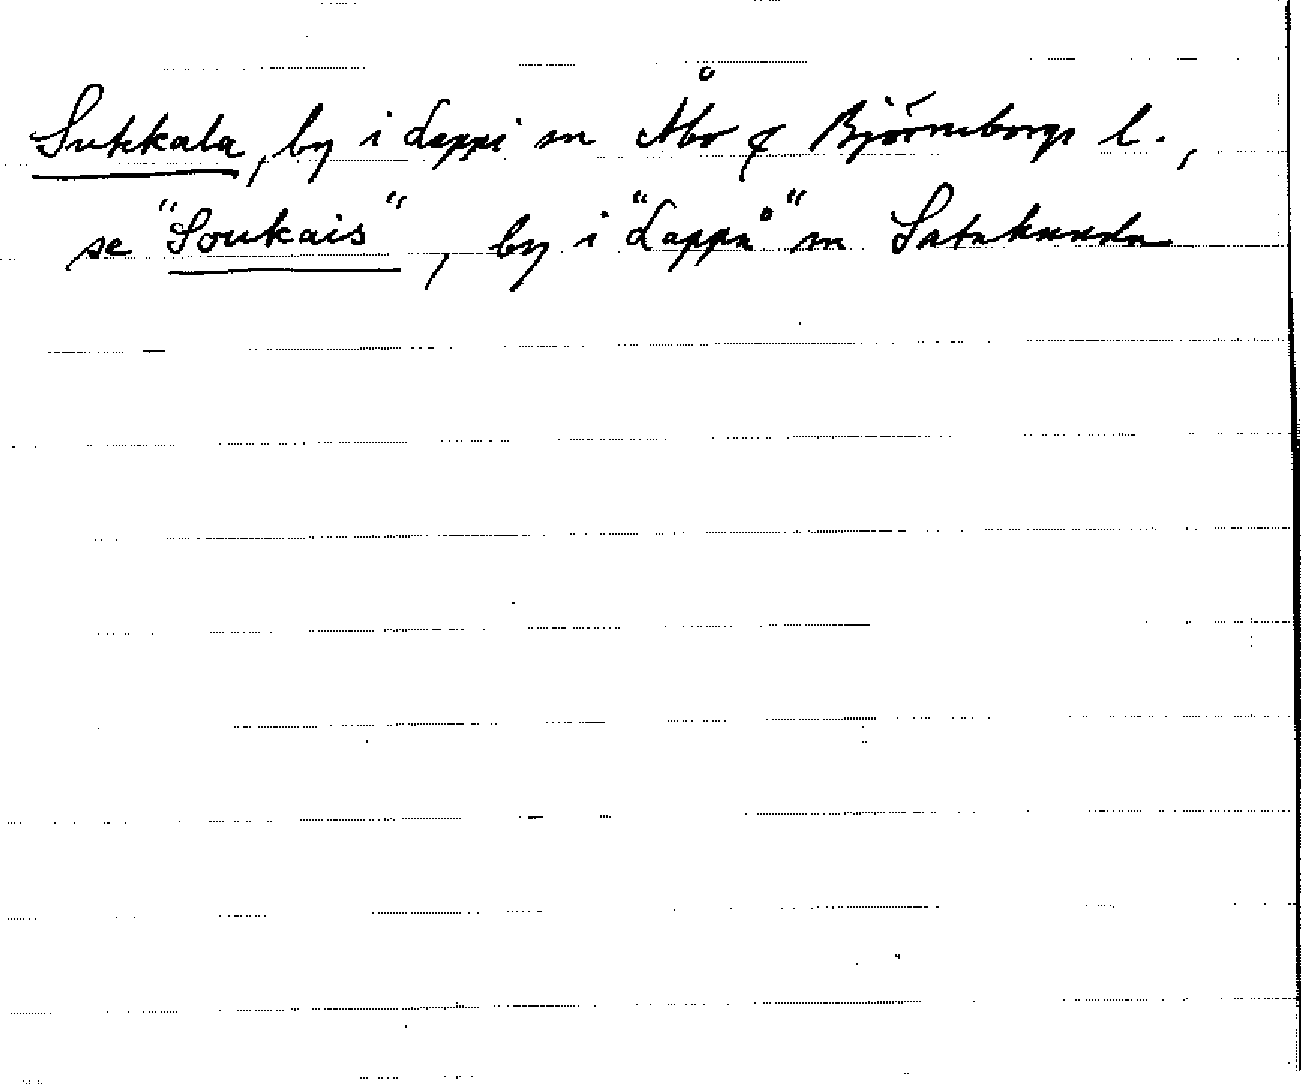 Sukkala, by i Lappi sn Åbo & Björneborgs l.,
se "Soukais", by i "Lappå" sn Satakunda